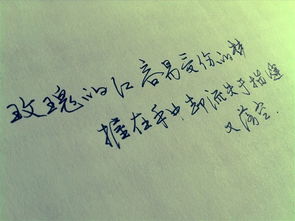 玫瑰的红 容易受伤的梦
握在手中, 却流失于指缝
又落空.